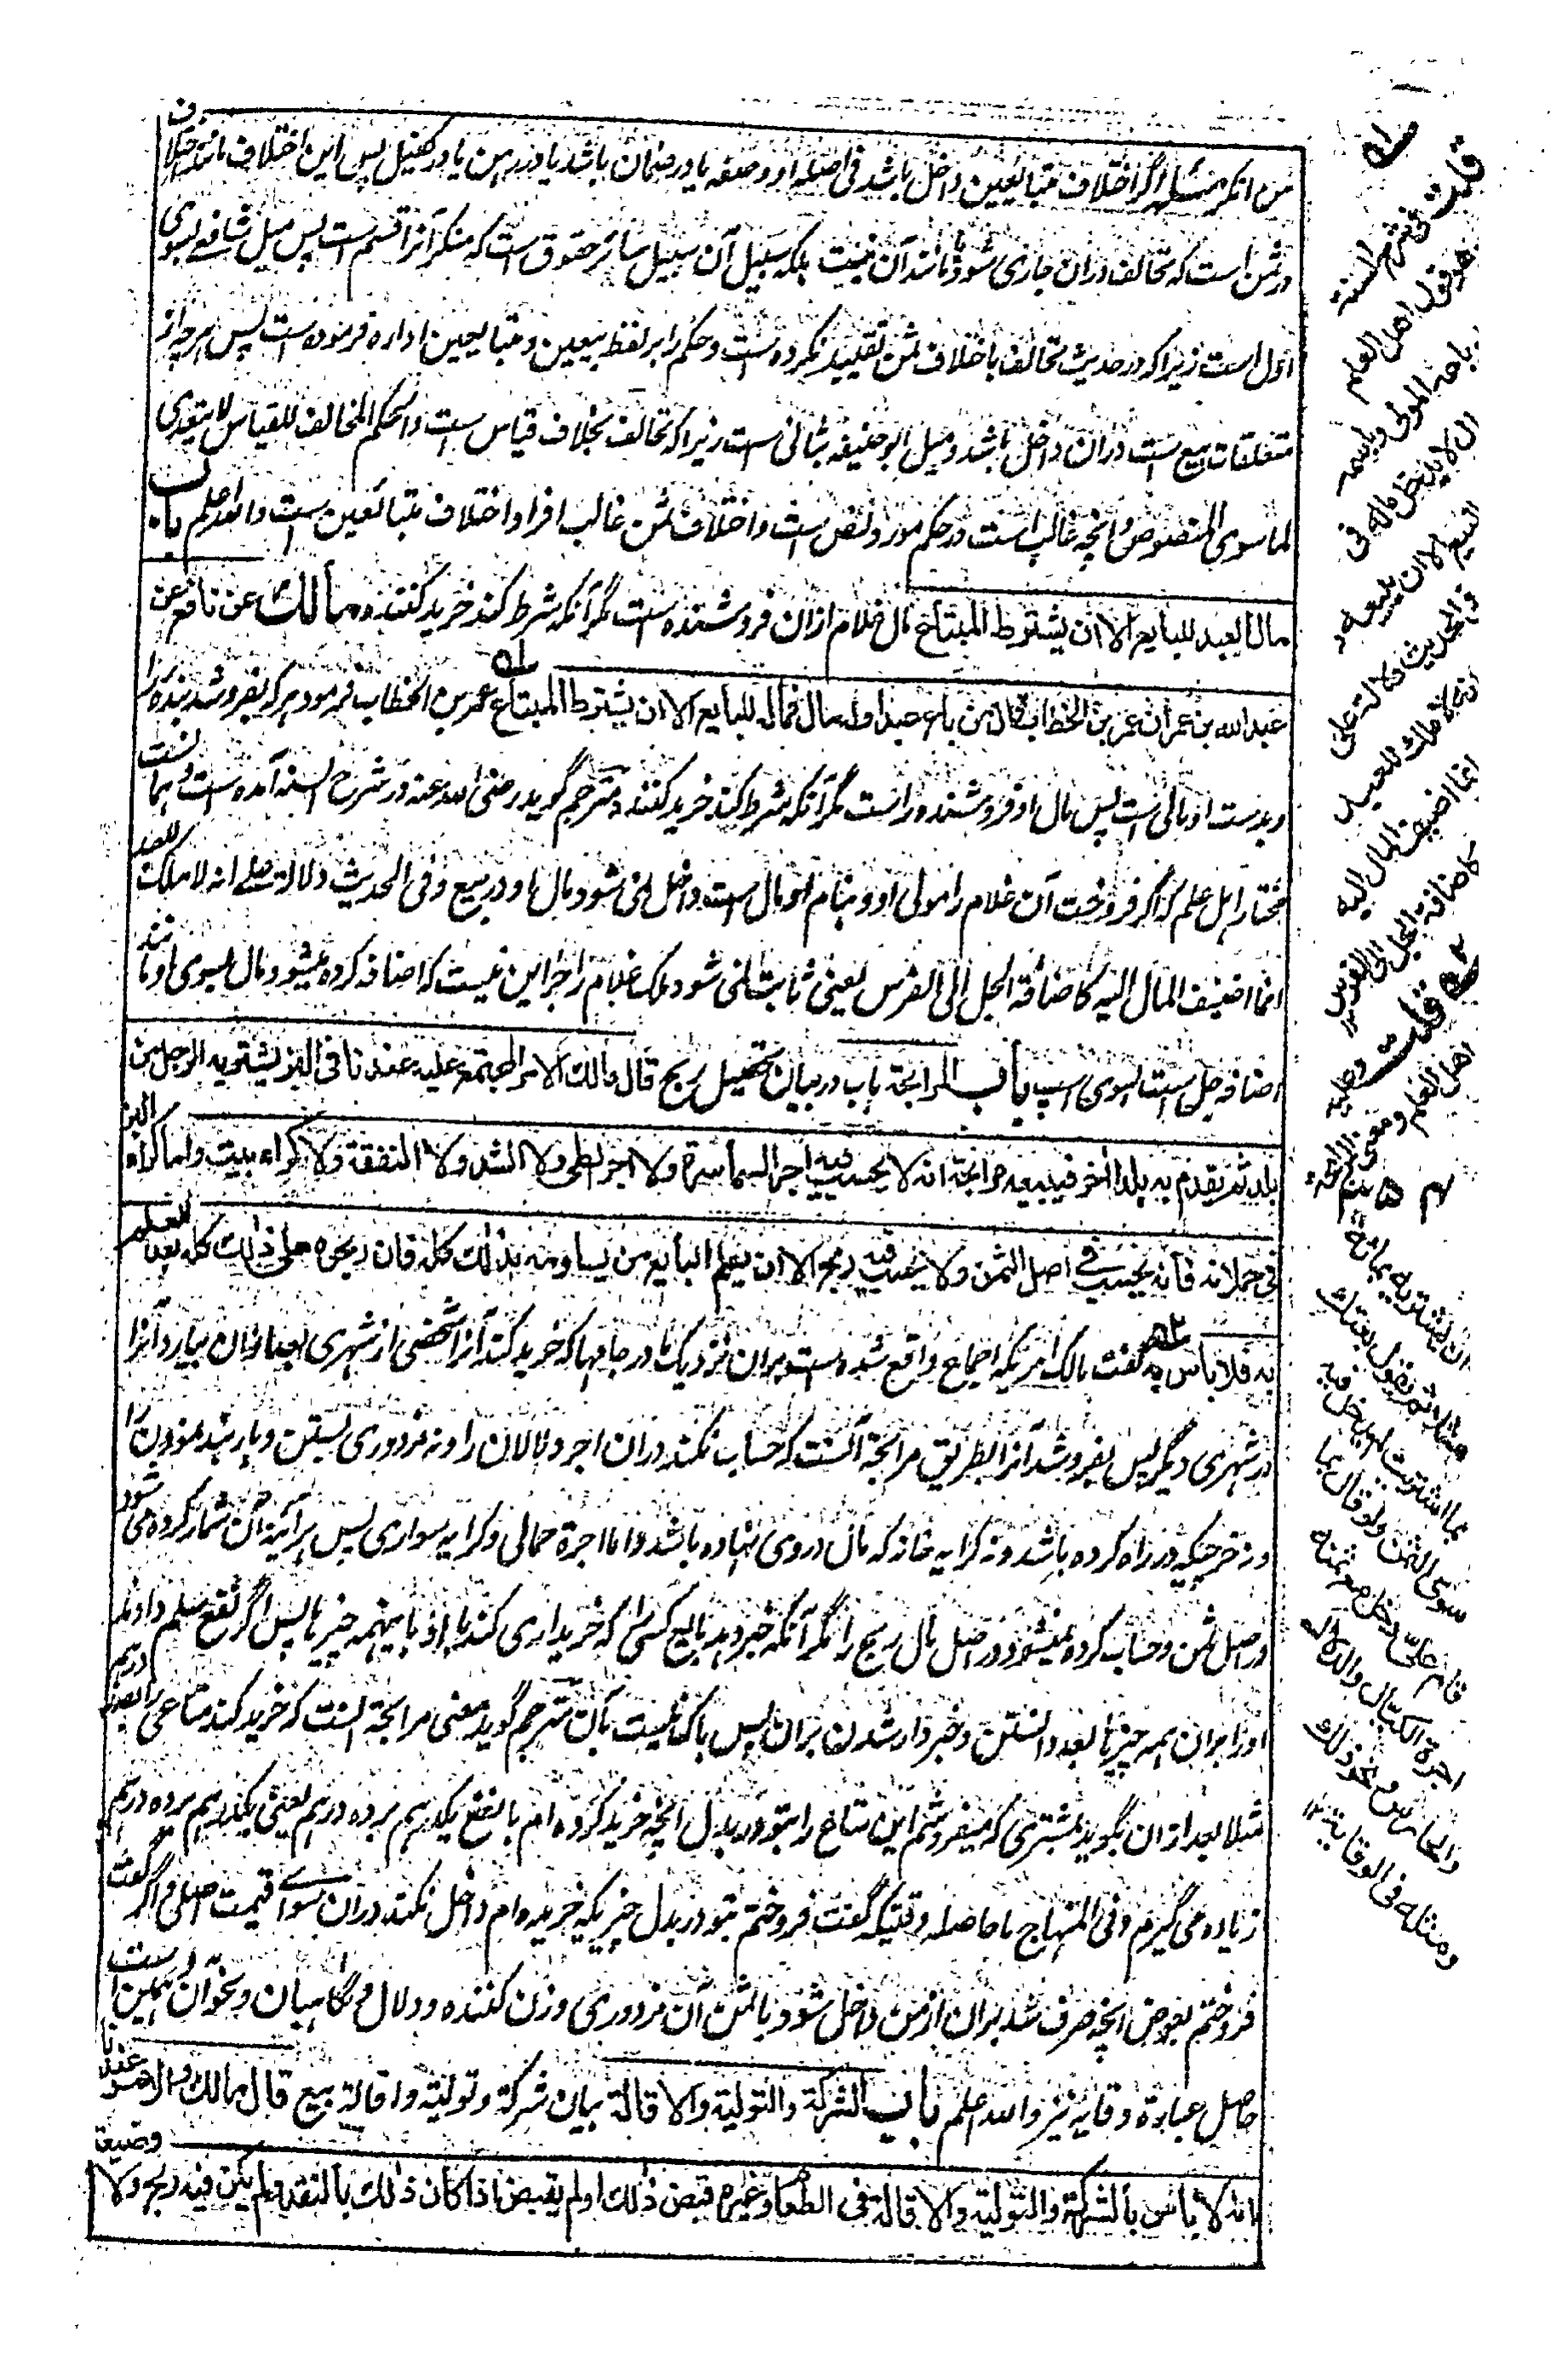 من انکر مسئله اگر اختلاف متبایعین داخل باشد فی اصله او وصفه یا در ضمان باشد یا در رهن یا در کفیل پس این اختلاف مانند اختلاف
در ثمن است که تحالف دران جاری شود یا مانند آن نیست بلکه سبیل آن سبیل سائر حقوق است که منکر آنرا قسم است پس میل شافعی بسوی
اول است زیرا که در حدیث تحالف باختلاف ثمن تقیید نکرده است و حکم را بر لفظ بیعین و متبایعین اداره فرموده است پس هرچه از
متعلقات بیع است دران داخل باشد و میل ابوحنیفه بثانی است زیرا که تحالف بخلاف قیاس است والحکم المخالف للقیاس لا یتعدی
لما سوی المنصوص و انچه غالب است در حکم مورد نص است و اختلاف ثمن غالب افراد اختلاف متبائعین است والله اعلم باب
مال العبد للبایع الا ان یشترط المبتاع مال غلام ازان فروشنده است مگر آنکه شرط کند خرید کننده مالك عن نافع عن
عبد الله بن عمر ان عمر بن الخطاب قال من باع عبدا وله مال فماله للبایع الا ان یشترط المبتاع عمر بن الخطاب فرمود هر که بفروشد بنده را
و بدست او مالی است پس مال او فروشنده راست مگر آنکه شرط کند خرید کننده مترجم گوید رضی الله عنه در شرح السنه آمده است و هما نست
مختار اهل علم که اگر فروخت آن غلام را مولی او و بنام او مال است داخل نمی شود مال او در بیع و فی الحدیث دلالة علی انه لا ملك للعبد
انما اضیف المال الیه کاضافة الجل الی الفرس یعنی ثابت نمی شود ملک غلام را جز این نیست که اضافه کرده میشود مال بسوی او مانند
اضافه جل است بسوی اسپ باب المرابحة باب در بیان تحصیل ربح قال مالك الامر المجتمع علیه عندنا فی البز یشتریه الرجل من
بلد ثم یقدم به بلدا آخر فیبیعه مرابحة انه لا یحسب فیه اجر السماسرة ولا اجر الطی ولا الشد ولا النفقة ولا کراء بیت واما کراء البز
فی حملانه فانه یحسب فی اصل الثمن ولا یحسب فیه ربح الا ان یعلم البایع من یساومه بذلك کله فان ربحوه علی ذلك کله بعد العلم
به فلا باس به گفت مالک امریکه اجماع واقع شده است بران نزدیک ما در جامها که خرید کند آنرا شخصی از شهری بعد ازان بیارد آنرا
در شهری دیگر پس بفروشد آنرا بطریق مرابحة آنست که حساب نکند دران اجر دلالان را و نه مزدوری بستن و بار شد نمودن را
و نه خرچیکه در راه کرده باشد و نه کرایه خانه که مال دروی نهاده باشد و اما اجرة حمالی و کرایه سواری پس هر آئینه آن شمار کرده می شود
در اصل ثمن و حساب کرده نمیشود در اصل مال ربح را مگر آنکه خبر دهد بایع کسی را که خریداری کند با او باینهمه چیزها پس اگر نفع مسلم دادند
او را بران همه چیزها بعد دانستن و خبردار شدن بران پس باکی نیست بآن مترجم گوید معنی مرابحة آنست که خرید کند متاعی را بصد درهم
مثلا بعد ازان بگوید بمشتری که میفروشم این متاع را بتو در بدل انچه خرید کرده ام با نفع یکدرهم بر ده درهم یعنی یکدرهم بر ده درهم
زیاده می گیرم و فی المنهاج ما حاصله وقتیکه گفت فروختم بتو در بدل چیزیکه خریده ام داخل نکند دران سوای قیمت اصلی و اگر گفت
فروختم بعوض انچه صرف شد بران از من داخل شود با ثمن آن مزدوری وزن کننده و دلال و نگاهبان و نحوآن و همین است
حاصل عبارة وقایه نیز والله اعلم باب الشرکة والتولیة والاقالة بیان شرکة و تولیة و اقالة بیع قال مالك والامر عندنا
انه لا باس بالشرکة والتولیة والاقالة فی الطعام وغیره قبض ذلك او لم یقبض اذا کان ذلك بالنقد ولم یکن فیه ربح ولا وضیعة
قلت فی شرح السنة
هو قول اهل العلم
باعه المولی وباسمه
مال لا یدخل ماله فی
البیع الا ان یبیعه و
فی الحدیث دلالة علی
انه لا ملك للعبد
انما اضیف المال الیه
کاضافة الجل الی الفرس
قلت وعلیه
اهل العلم ومعنی المرابحة
ان یشتریه بمائة
مثلا ثم یقول بعتك
بما اشتریت لم یدخل فیه
سوی الثمن ولو قال بما
قام علیّ دخل مع ثمنه
اجرة الکیال والدلال
والحارس ونحو ذلك
ومثله فی الوقایة